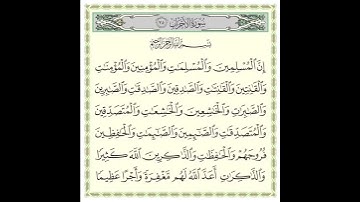 سُورَةُ الأَحْزَابِ
بِسْمِ اللَّهِ الرَّحْمَٰنِ الرَّحِيمِ
إِنَّ الْمُسْلِمِينَ وَالْمُسْلِمَٰتِ وَالْمُؤْمِنِينَ وَالْمُؤْمِنَٰتِ
وَالْقَٰنِتِينَ وَالْقَٰنِتَٰتِ وَالصَّٰدِقِينَ وَالصَّٰدِقَٰتِ وَالصَّٰبِرِينَ
وَالصَّٰبِرَٰتِ وَالْخَٰشِعِينَ وَالْخَٰشِعَٰتِ وَالْمُتَصَدِّقِينَ
وَالْمُتَصَدِّقَٰتِ وَالصَّٰٓئِمِينَ وَالصَّٰٓئِمَٰتِ وَالْحَٰفِظِينَ
فُرُوجَهُمْ وَالْحَٰفِظَٰتِ وَالذَّٰكِرِينَ اللَّهَ كَثِيرًا
وَالذَّٰكِرَٰتِ أَعَدَّ اللَّهُ لَهُم مَّغْفِرَةً وَأَجْرًا عَظِيمًا